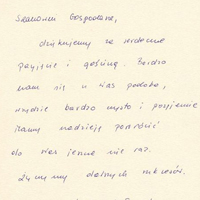 Szanowni Gospodarze,
dziękujemy za serdeczne
przyjęcie i gościnę. Bardzo
nam się u Was podoba,
wszędzie bardzo czysto i przyjemnie
Mamy nadzieję powrócić
do Was jeszcze nie raz.
Życzymy dalszych sukcesów.